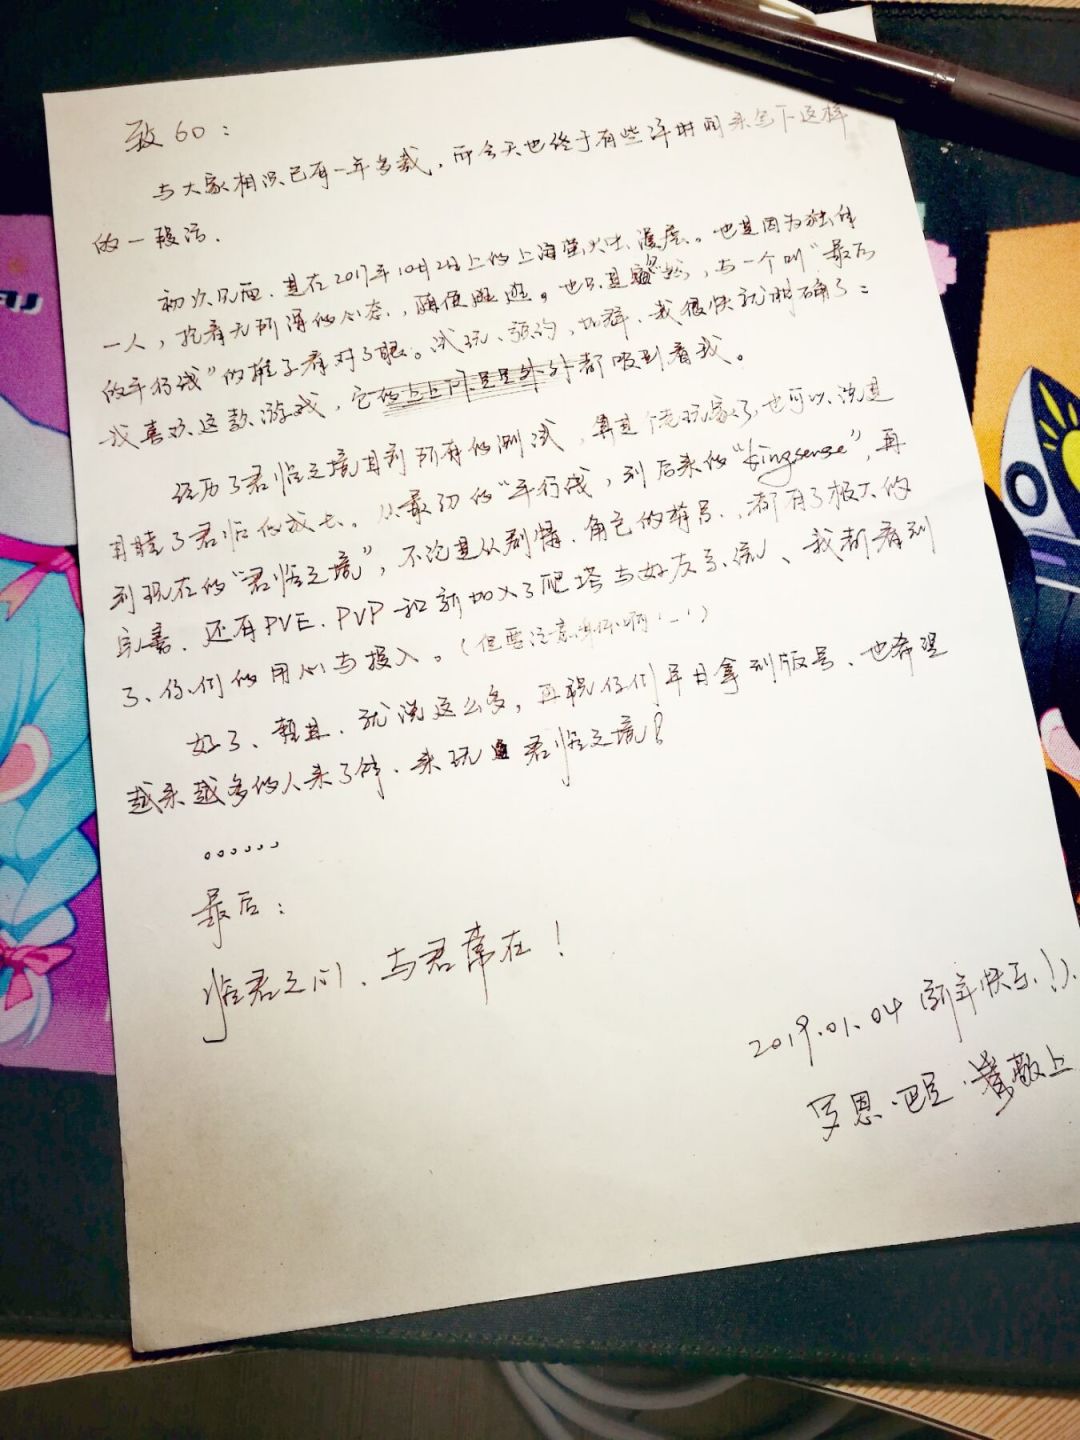 致60：
与大家相识已有一年多载，而今天也终于有些许时间来写下这样
的一段话.
初次见面.是在2017年10月2日上的上海萤火虫漫展。也是因为独自
一人，抱着无所谓的心态，随便逛逛。也只是，与一个叫"最后
的平行线"的摊子看对了眼。试玩、预约、加群.我很快就明确了：
我喜欢这款游戏，它都吸引着我。
经历了君临之境目前所有的测试，算是个老玩家了，也可以说是
目睹了君临的成长。从最初的"平行线，到后来的"kingsense",再
到现在的"君临之境"，不论是从剧情.角色的都有了极大的
完善.还有PVE.PVP和新加入了爬塔与好友系统、我都看到
了、你们的用心与投入。(但要注意身体啊！_！)
好了、暂且.就说这么多，再祝你们早日拿到版号、也希望
越来越多的人来了解.来玩君临之境！
。。。。。。
最后：
临君之间、与君常在！
2019.01.04 新年快乐！).
罗恩.巴.敬上